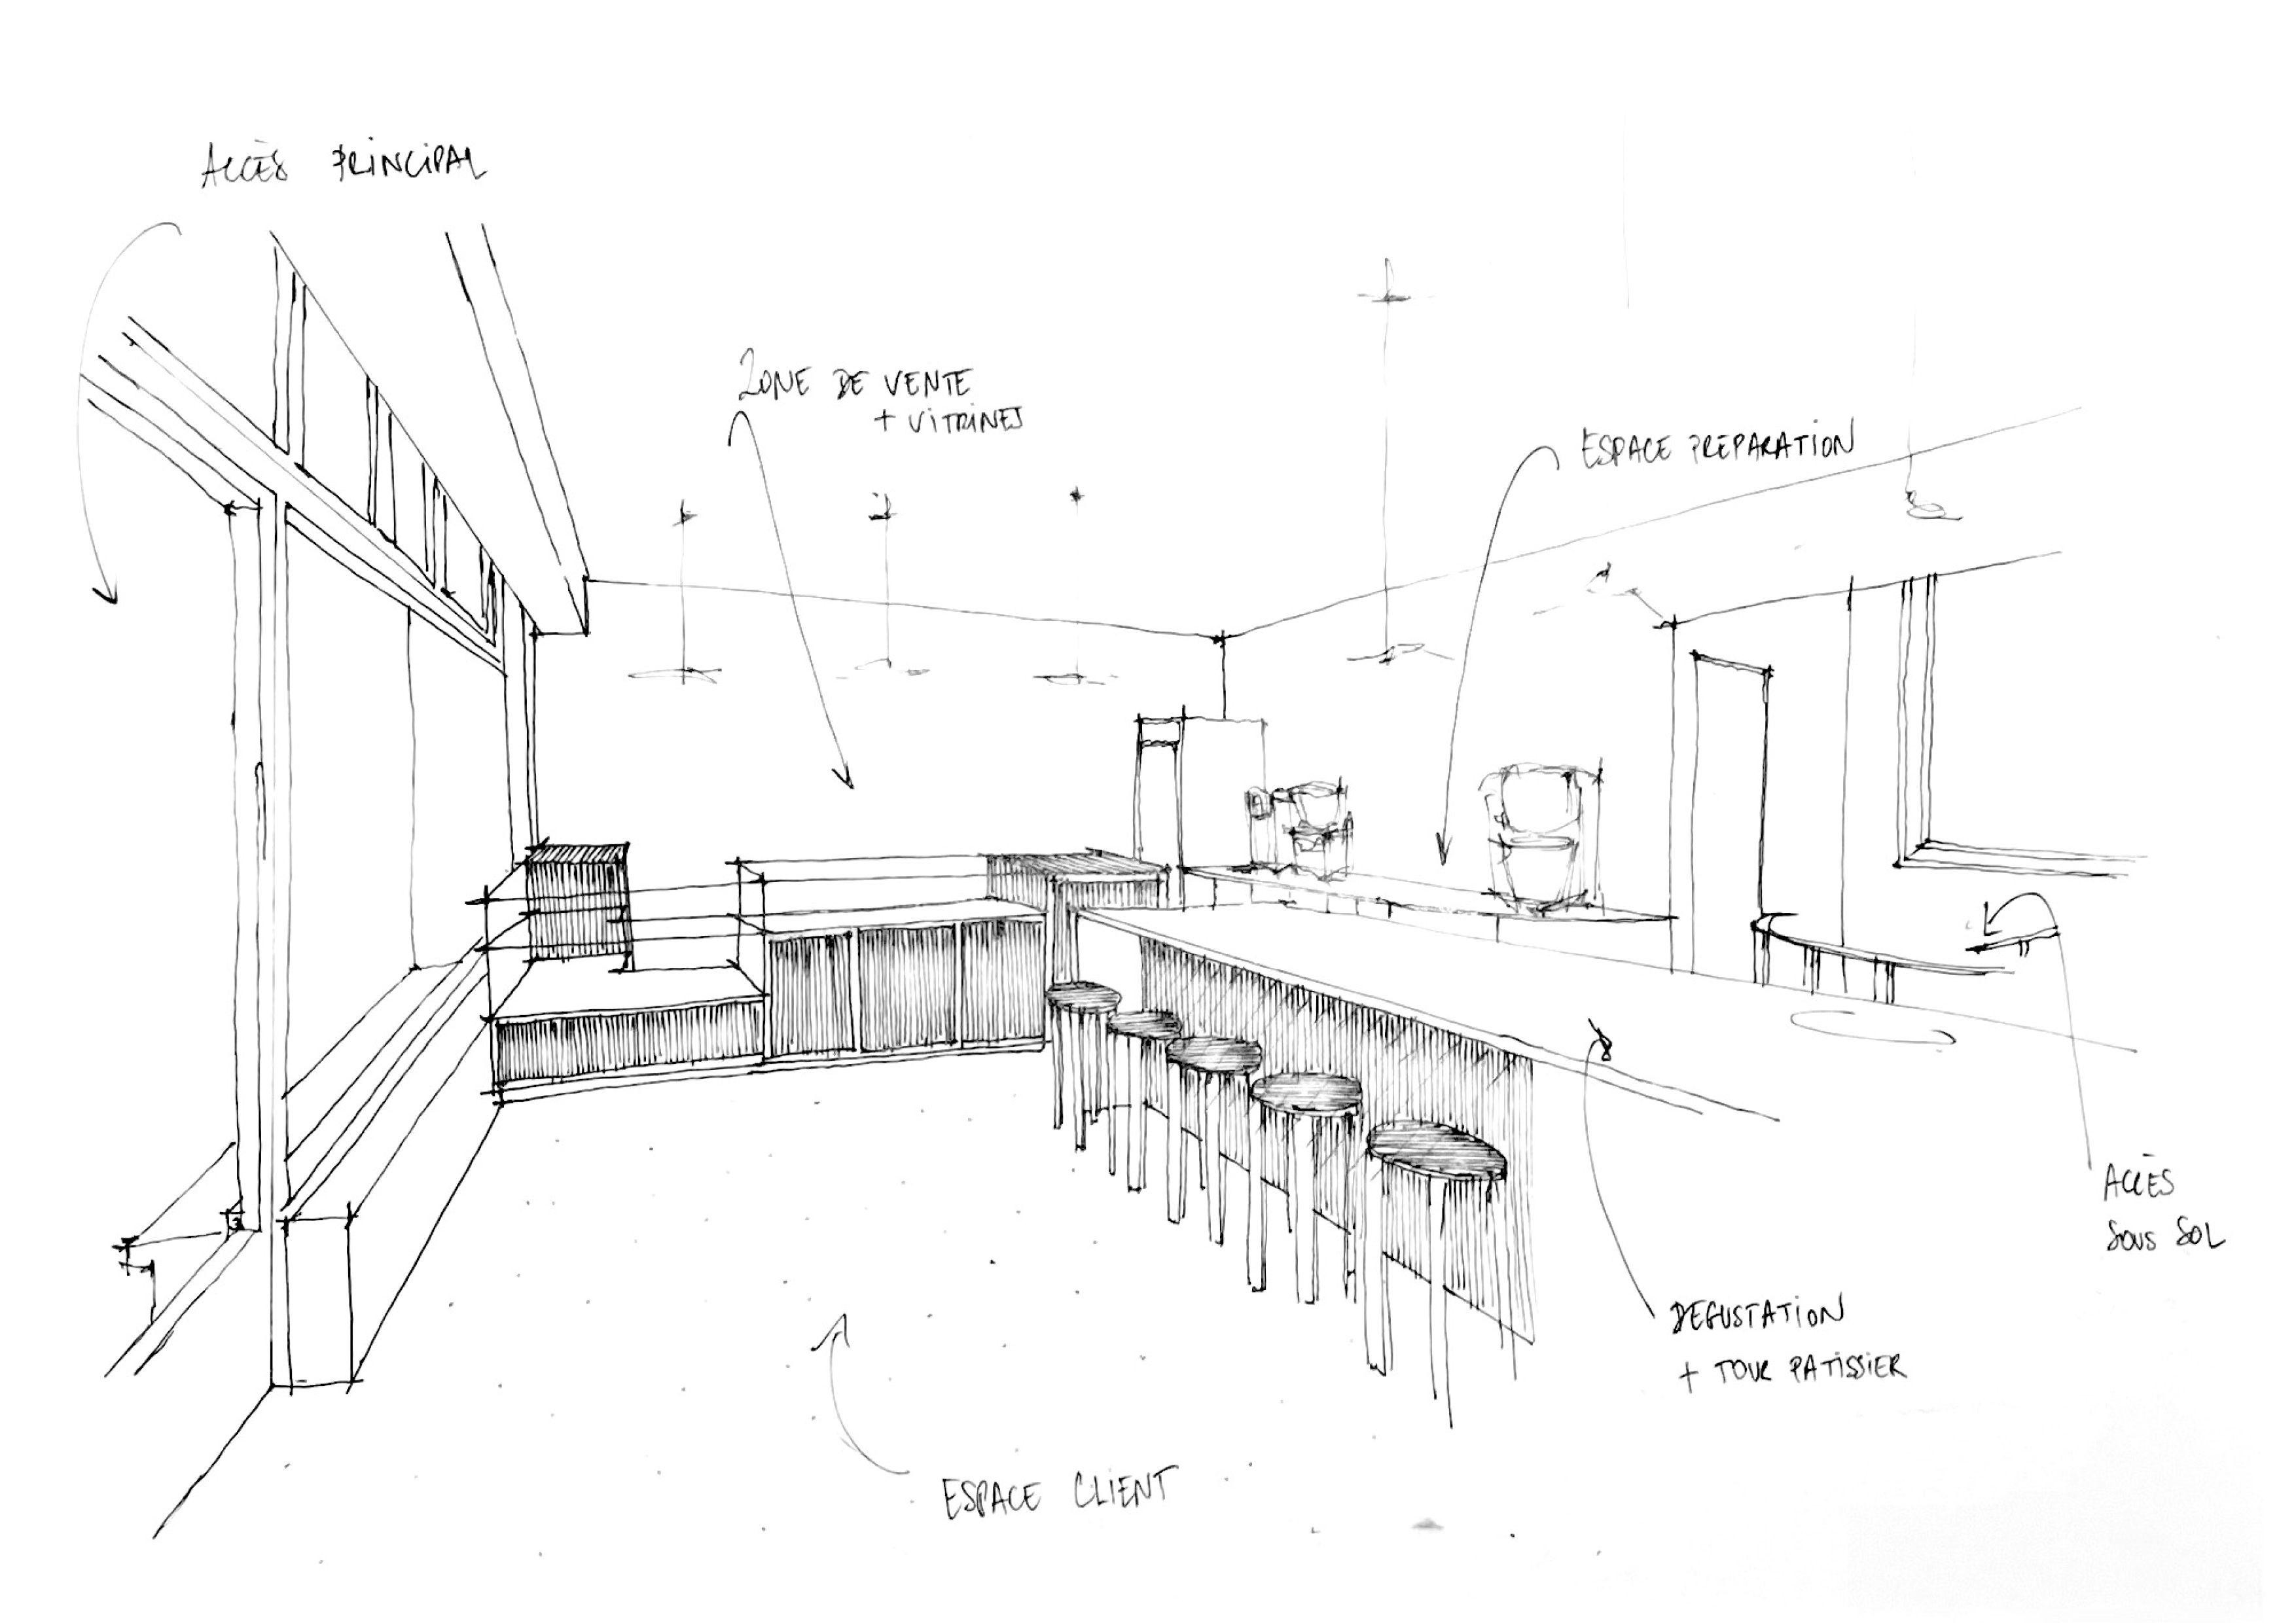 ACCÈS PRINCIPAL
ZONE DE VENTE
+ VITRINES
ESPACE PREPARATION
ACCÈS
SOUS SOL
DEGUSTATION
+ TOUR PATISSIER
ESPACE CLIENT